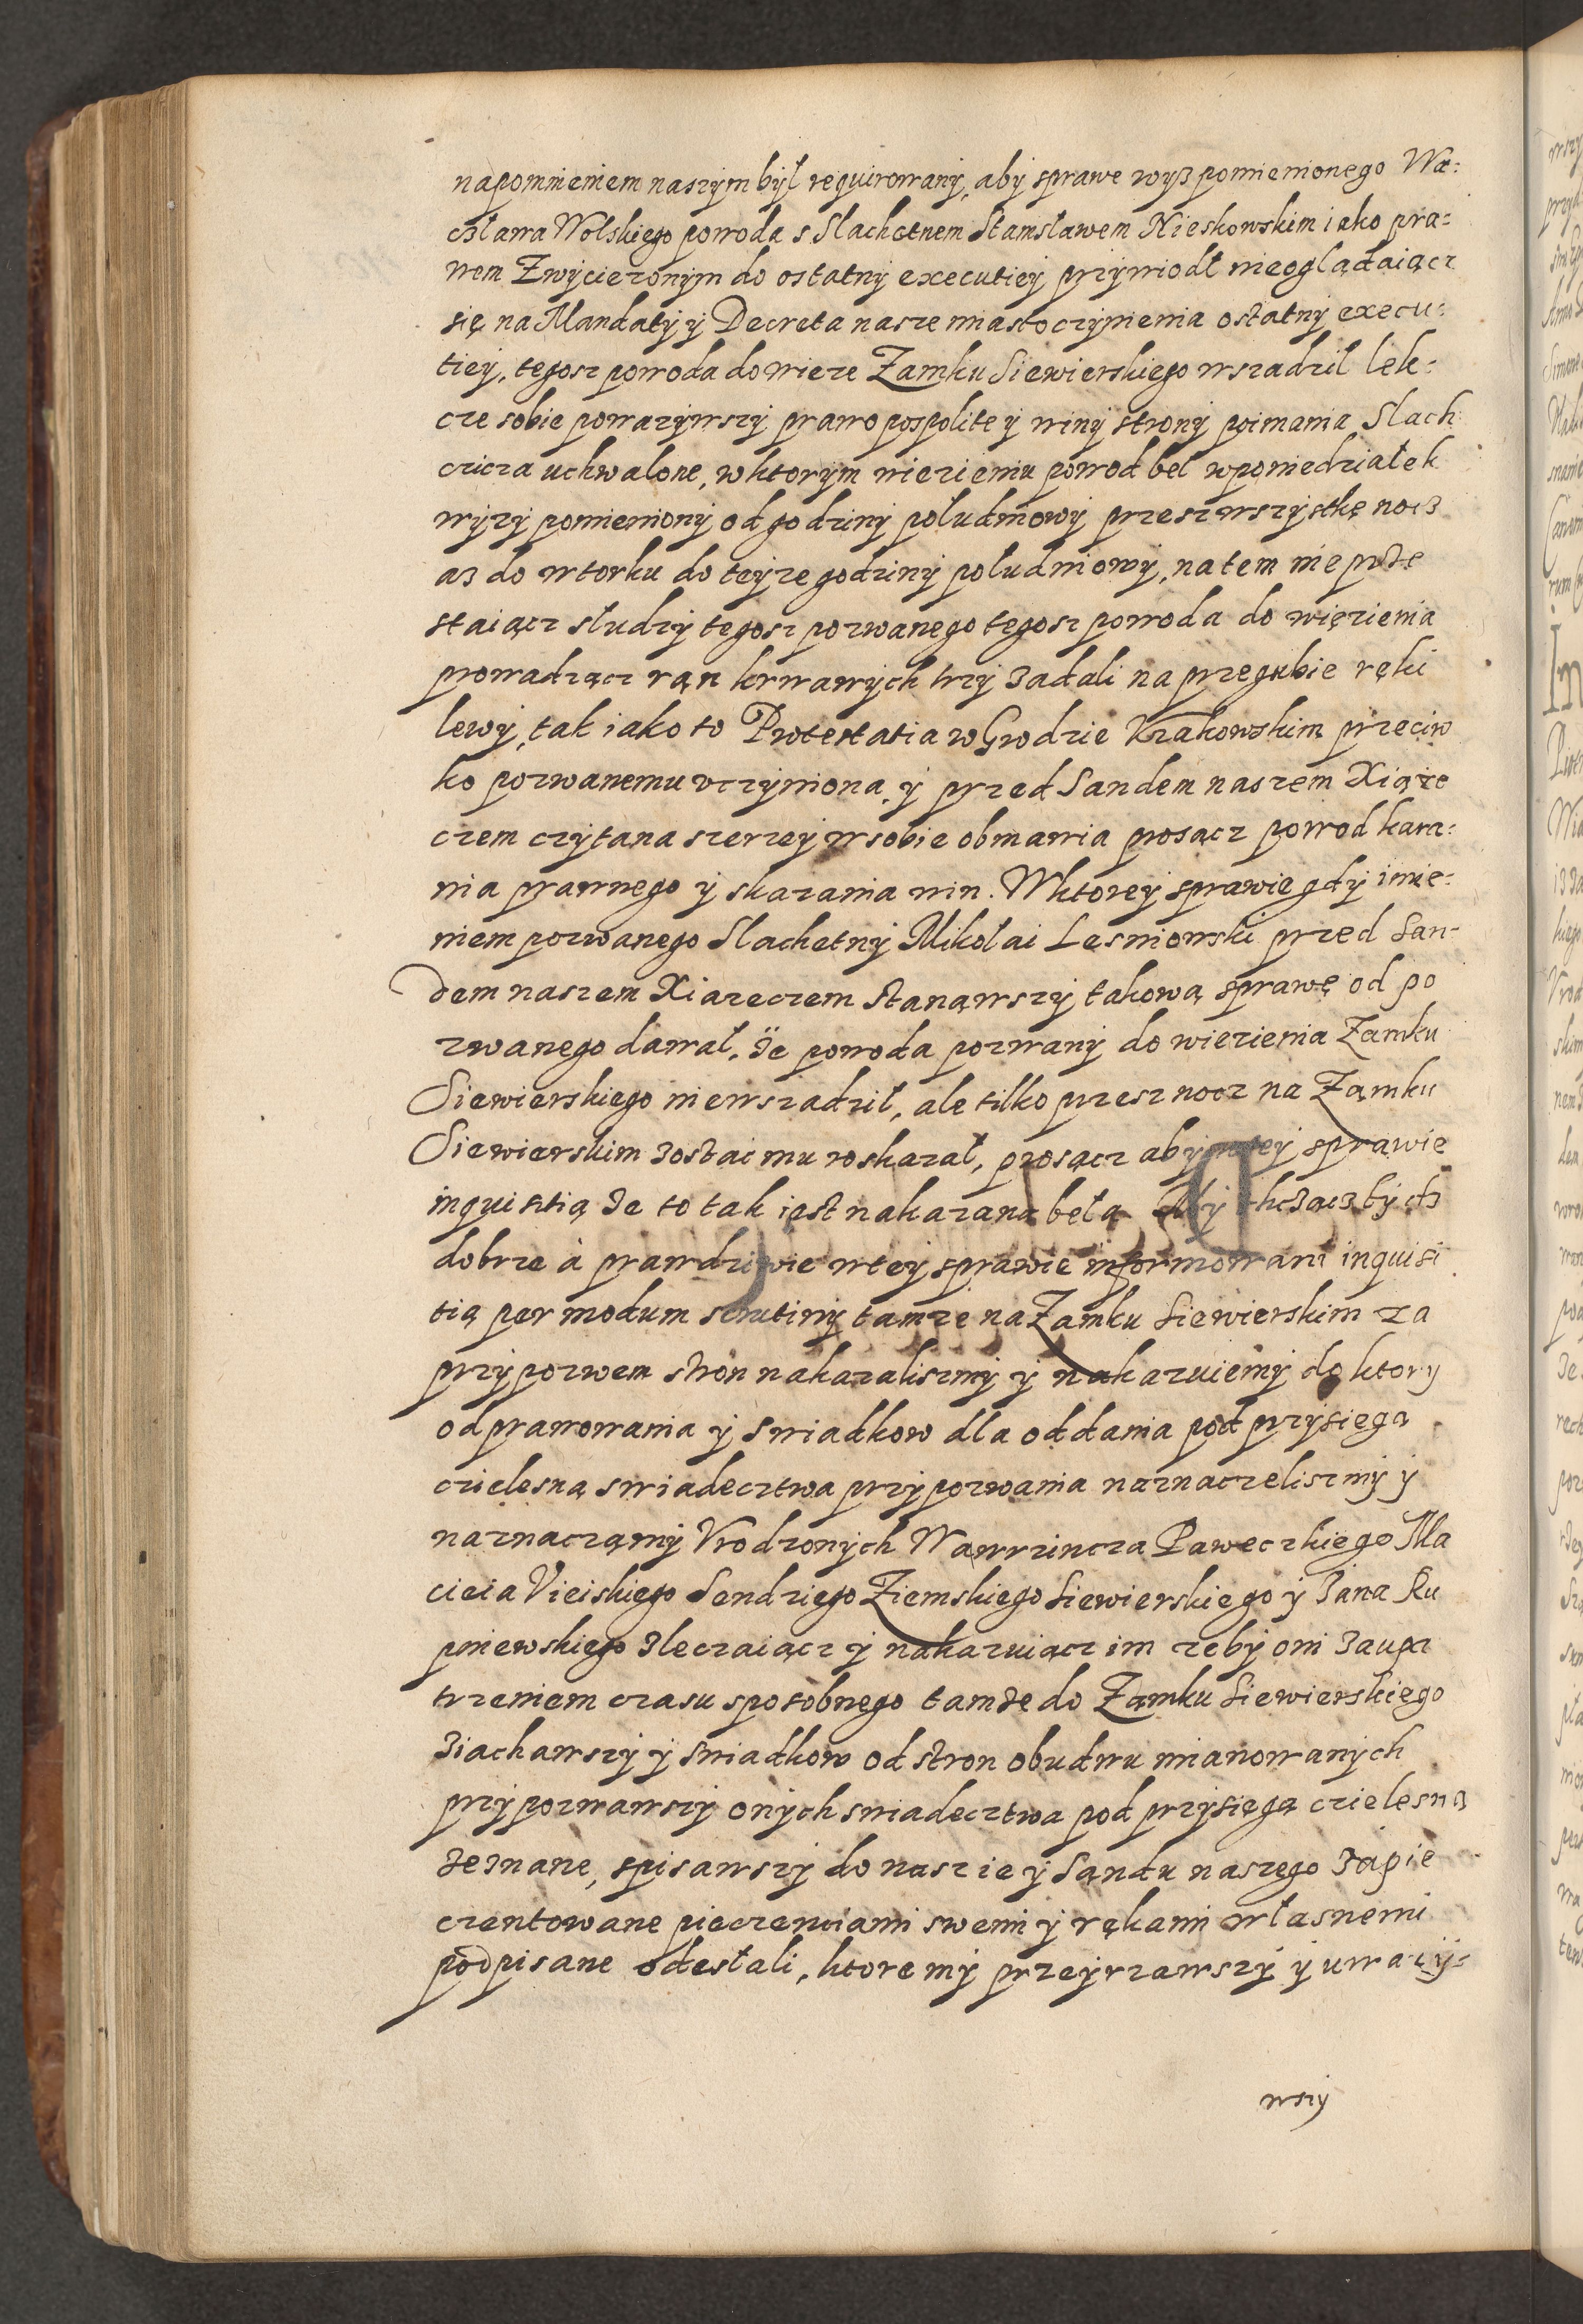 napomnieniem naszym był requirowany, aby sprawe wysz pomienionego Wa=
cżława Wolskiego powoda s Slachetnem Stanisławem Nieskowskim iako pra=
wem Zwyciezonym do ostatny executiey przywiodł nieogłądaiącz
się na Mandaty y Decreta nasze miasto czynienia ostatny execu=
tiey, tegosz powoda do wieze Zamku Siewierskiego wszadził lek=
cze sobie powazywszy prawo pospolite y winy strony poimania Slach
czicza uchwalone, wktorym wiezieniu powod bel wponiedziałek
wyzy pomieniony od godziny południowy przesz wszystkę nocz
asz do wtorku do teyze godziny południowy, na tem nie prze
staiącz słudzy tegosz pozwanego tegosz powoda do więzienia
prowadząc ran krwawych trzy zadali na przegubie ręki
lewy, tak iako to Protestatia w Grodzie Krakowskim przeciw
ko pozwanemu vczyniona, y przed Sandem naszem Xiąże
czem czytana szerzey wsobie obmawia prosącz powod kara=
nia prawnego y skazania win. Wktorey sprawie gdy imie=
niem pozwanego Slachetny Mikołai Lesniowski przed San=
dem naszem Xiazeczem stanąwszy takową sprawę od po
zwanego dawał, że powoda pozwany do wiezienia Zamku
Siewierskiego niewszadził, ale tilko przesz nocz na Zamku
Siewierskim zostać mu roskazał, prosącz aby wtey sprawie
inquisitią że to tak iest nakazana beła
dobrze à prawdziwie wtey sprawie informowani inquisi
tią per modum scrutiny tamze na Zamku Siewierskim za
przypozwem stron nakazaliszmy y nakazuiemy do ktory
odprawowania y swiadkow dla oddania pod przysięgą
czielesną swiadecztwa przypozwania naznaczeliszmy y
naznaczamy Vrodzonych Wawrzincza Paweczkiego Ma
cieia Vieiskiego Sendziego Ziemskiego Siewierskiego y Jana Ru
pniewskiego zleczaiącz y nakazuiącz im zeby oni zaupa
trzeniem czasu sposobnego tamże do Zamku Siewierskiego
ziachawszy y swiadkow od stron obudwu mianowanych
przypozwawszy onych swiadecztwa pod przysięgą czielesną
zeznane, spisawszy do nasz iey Sandu naszego zapie
czentowane pieczenciami swemi y rękami własnemi
podpisane odesłali, ktore my przeyrzawszy y uwazy=
wszy